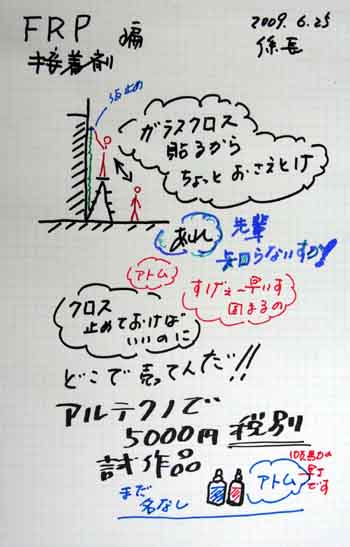 FRP 編
接着剤
2009.6.25
係長
仮止め
ガラスクロス
貼るから
ちょっと おさえとけ
あれ
先輩
知らないすか!
アトム
すげぇー早いす
固まるの
クロス
止めておけば
いいのに
どこで売ってんだ!!
アルテクノで
5000円 税別
試作品
まだ
名なし
アトム
早J
です